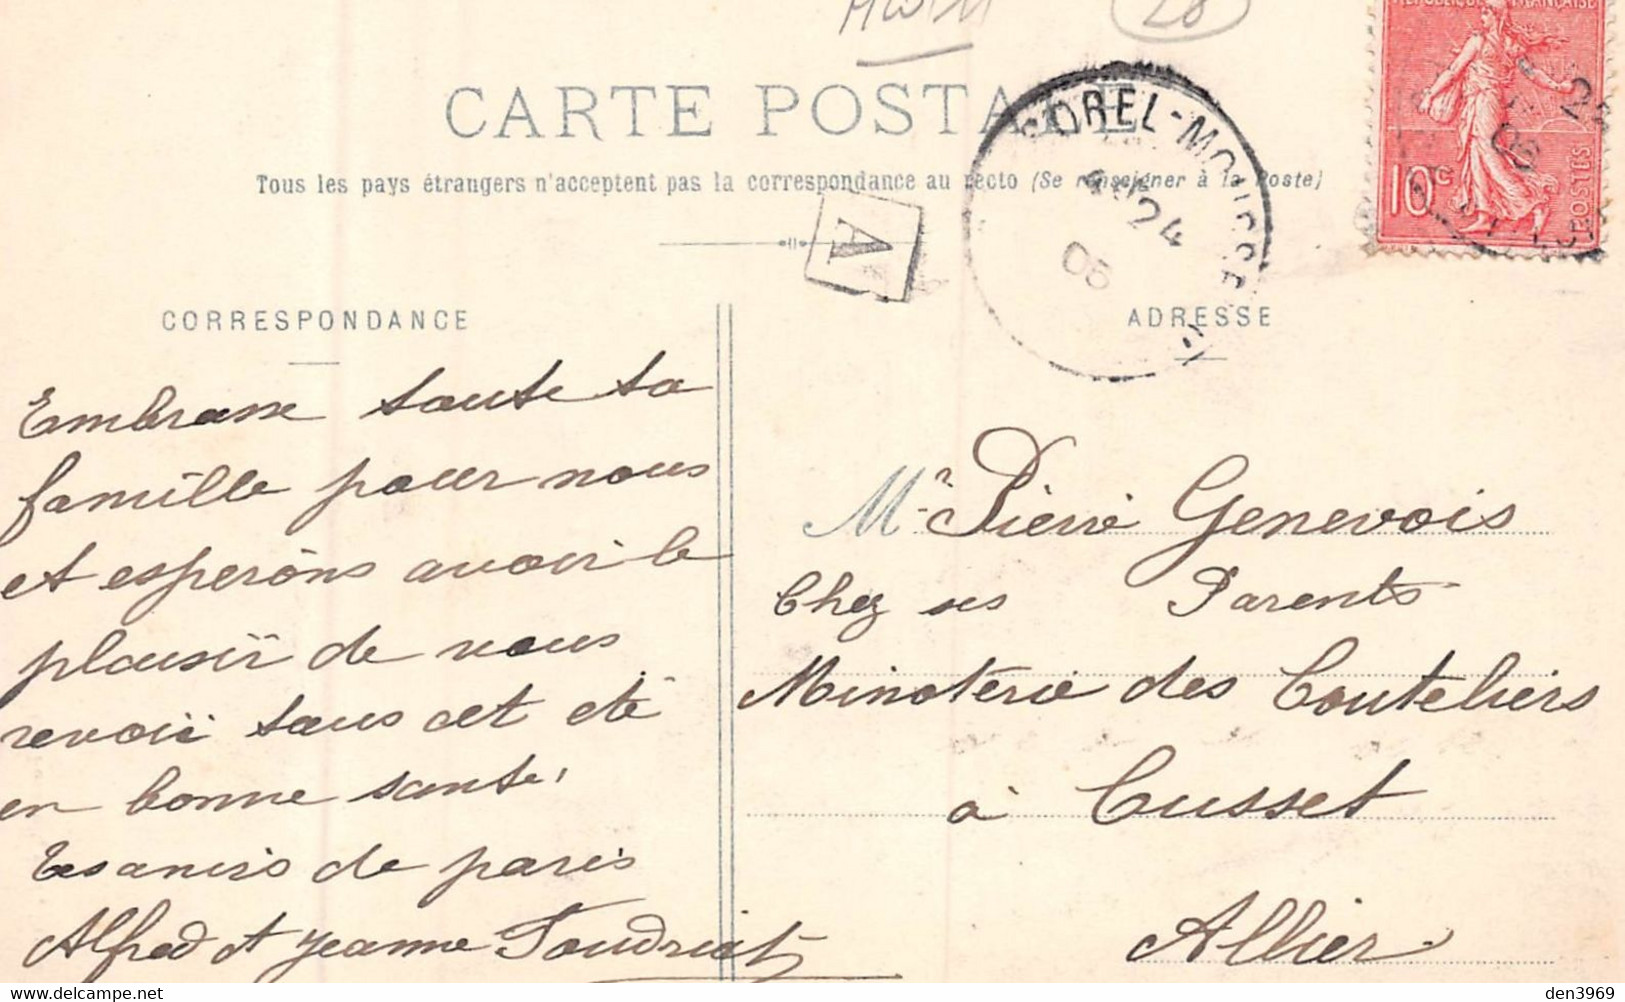 28
RÉPUBLIQUE FRANÇAISE
CARTE POSTALE
SOREL-MOUSSEL
24
05
10c
POSTES
Tous les pays étrangers n'acceptent pas la correspondance au recto (Se renseigner à la Poste)
A
CORRESPONDANCE
ADRESSE
Embrasse toute ta
famille pour nous
et esperons avoir le
plaisir de vous
revoir sous cet eté
en bonne sante,
Tes amis de paris
Alfred et Jeanne
Mr Pierre Genevois
Chez ses Parents
Minoterie des Couteliers
à Cusset
Allier
den3969